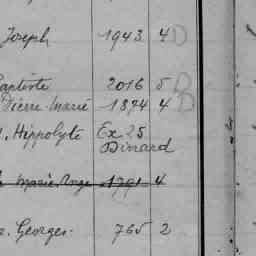 Joseph 1943 4 D
Baptiste 2016 5 D
Pierre Marie 1874 4 D
Hippolyte Ex 25
Dinard
Marie Ange 1791 4
Georges. 765 2